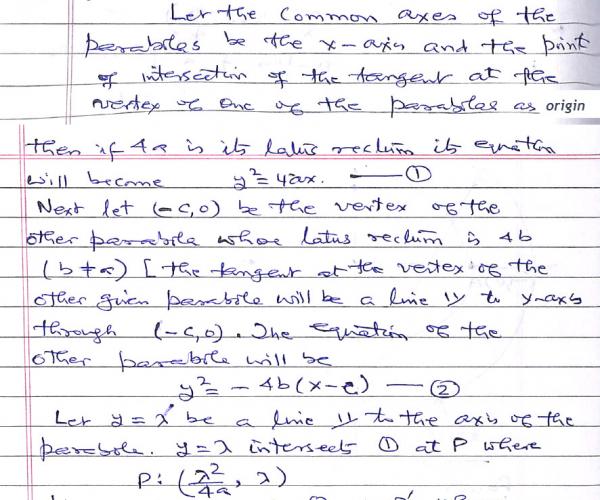 Let the Common axes of the
parabolas be the x-axis and the point
of intersection of the tangent at the
vertex of one of the parabolas as origin
then if 4a is its latus rectum its equation
will become y² = 4ax. —— ①
Next let (-c, 0) be the vertex of the
other parabola whose latus rectum is 4b
(b ≠ a) [the tangent at the vertex of the
other given parabola will be a line || to y-axis
through (-c, 0). The equation of the
other parabola will be
y² = -4b(x-c) —— ②
Let y = λ be a line || to the axis of the
parabola. y = λ intersects ① at P where
P: (λ²/4a, λ)